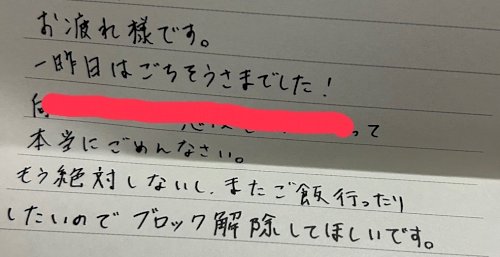 お疲れ様です。
一昨日はごちそうさまでした!
って
本当にごめんなさい。
もう絶対しないし、またご飯行ったり
したいのでブロック解除してほしいです。